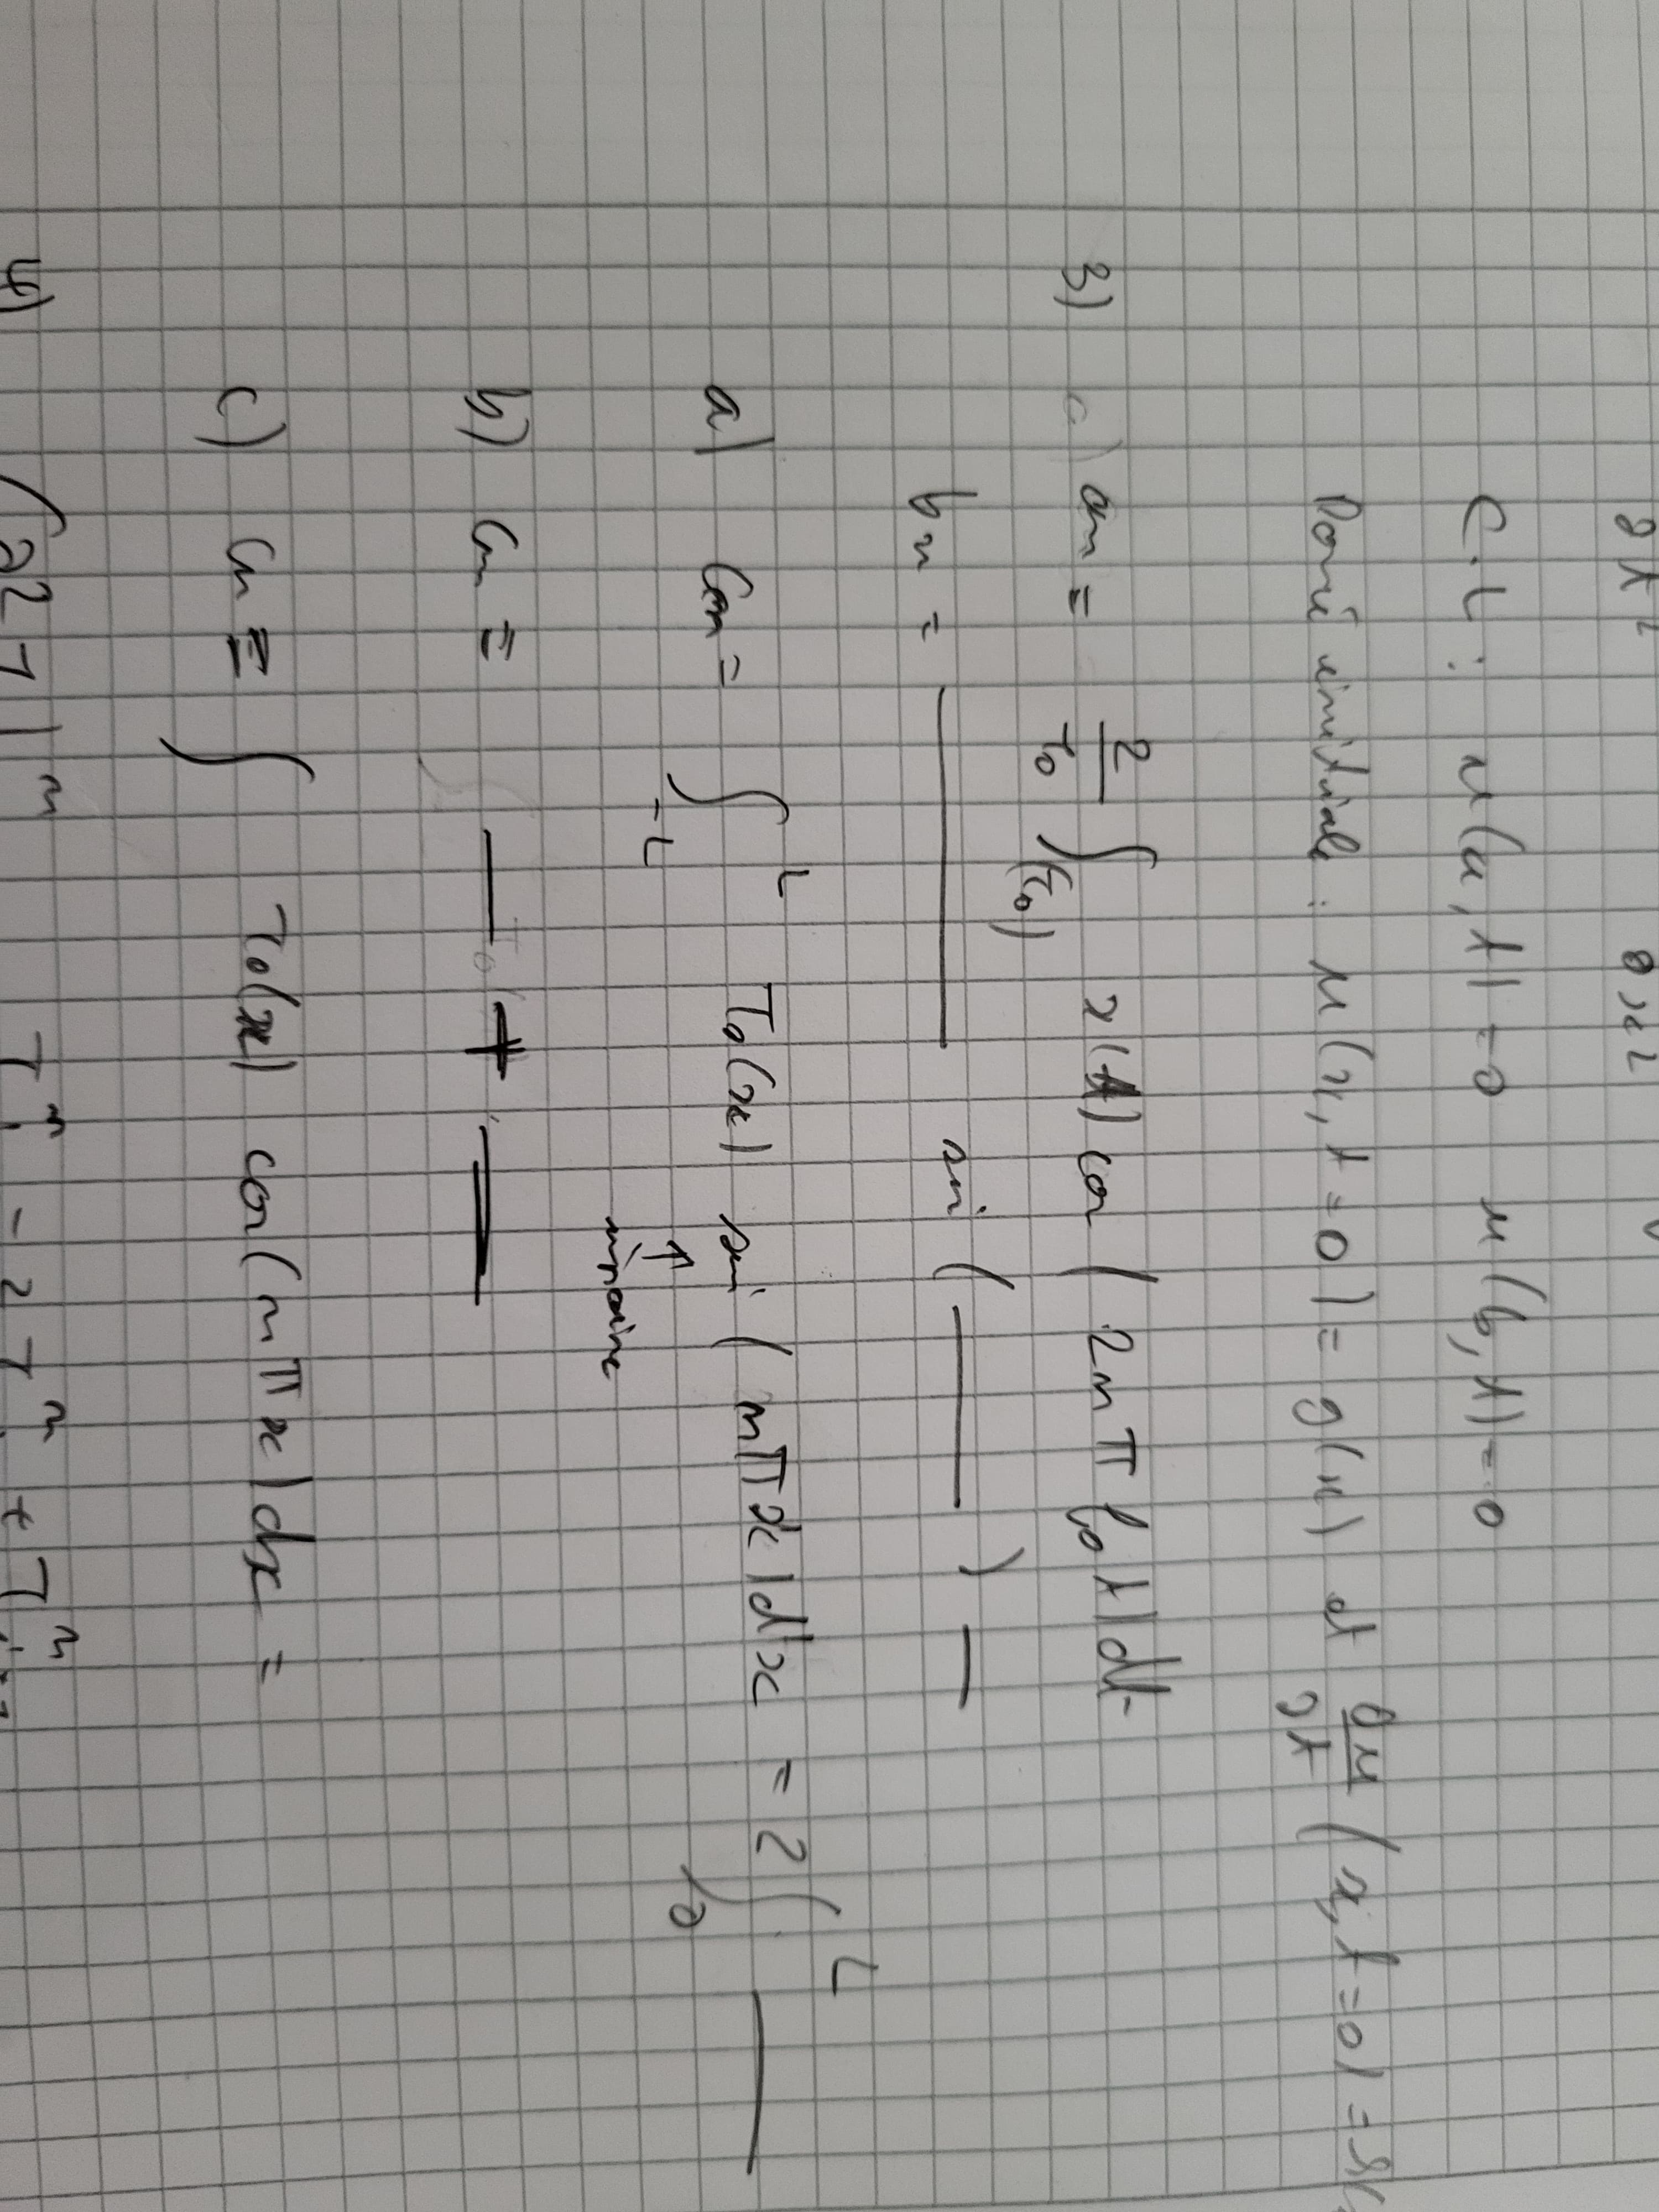 ∂t² ∂x²
C.L : u(a, t) = 0 u(b, t) = 0
Doné initiale : u(x, t = 0) = g(x) et ∂u/∂t (x, t = 0) =
3) an = 2/T0 ∫(T0) x(t) cos(2nπ f0 t) dt
bn = ——— sin( —— ) —
a) Cn = ∫_{-L}^{L} T0(x) sin(nπx) dx = 2 ∫_0^L ——
↑
b) Cn = — + —
c) Cn = ∫ T0(x) cos(nπx) dx =
4)